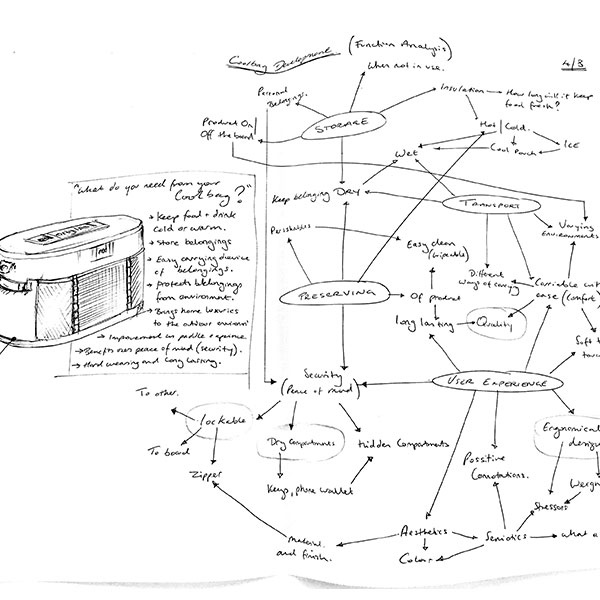 Coolbag Development (Function Analysis)
4/3
When not in use.
Personal
Belongings.
Insulation
How long will it keep
food fresh?
Product On/
Off the board
STORAGE
Hot/Cold.
ICE
Cool Pouch
Wet
"What do you need from your
Cool bag?"
Keep belonging DRY
TRANSPORT
Keep food + drink
cold or warm.
Store belongings
Easy carrying device
of belongings.
Protects belongings
from environment.
Brings home luxuries
to the outdoor environment
Improvement on paddle experience
Benefits user peace of mind (security).
Hard wearing and long lasting.
Perishables
Easy clean
(wipeable)
Varying
Environments
Different
ways of carry
Carriable with
ease (comfort)
PRESERVING
Of product
long lasting
Quality
Soft t
Security
(Peace of mind)
USER EXPERIENCE
To other.
lockable
To board
Zipper
Dry Compartments
Hidden Compartments
Keys, phone wallet
Possitive
Connotations.
Ergonomical
design
Weight
Stressors
Aesthetics
Semiotics
what a
Material
and finish.
Colour